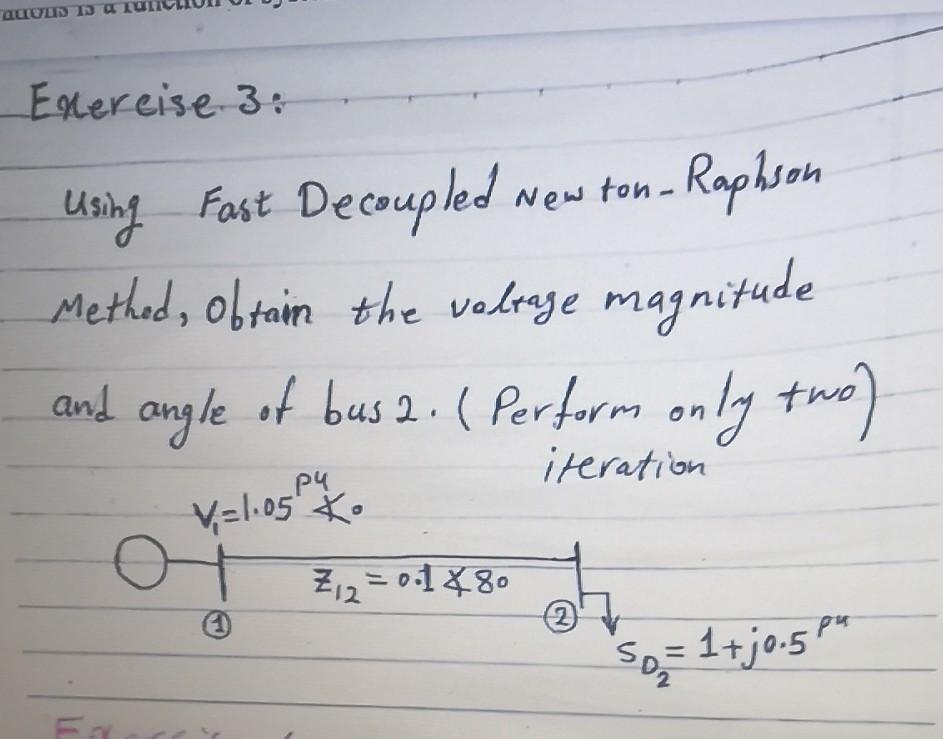 ations is a function of sy
Exercise 3:
Using Fast Decoupled Newton-Raphson
Method, Obtain the voltage magnitude
and angle of bus 2. (Perform only two)
iteration
V₁=1.05 pu ∡0
Z₁₂ = 0.1 ∡80
① ②
S_D₂ = 1+j0.5 pu